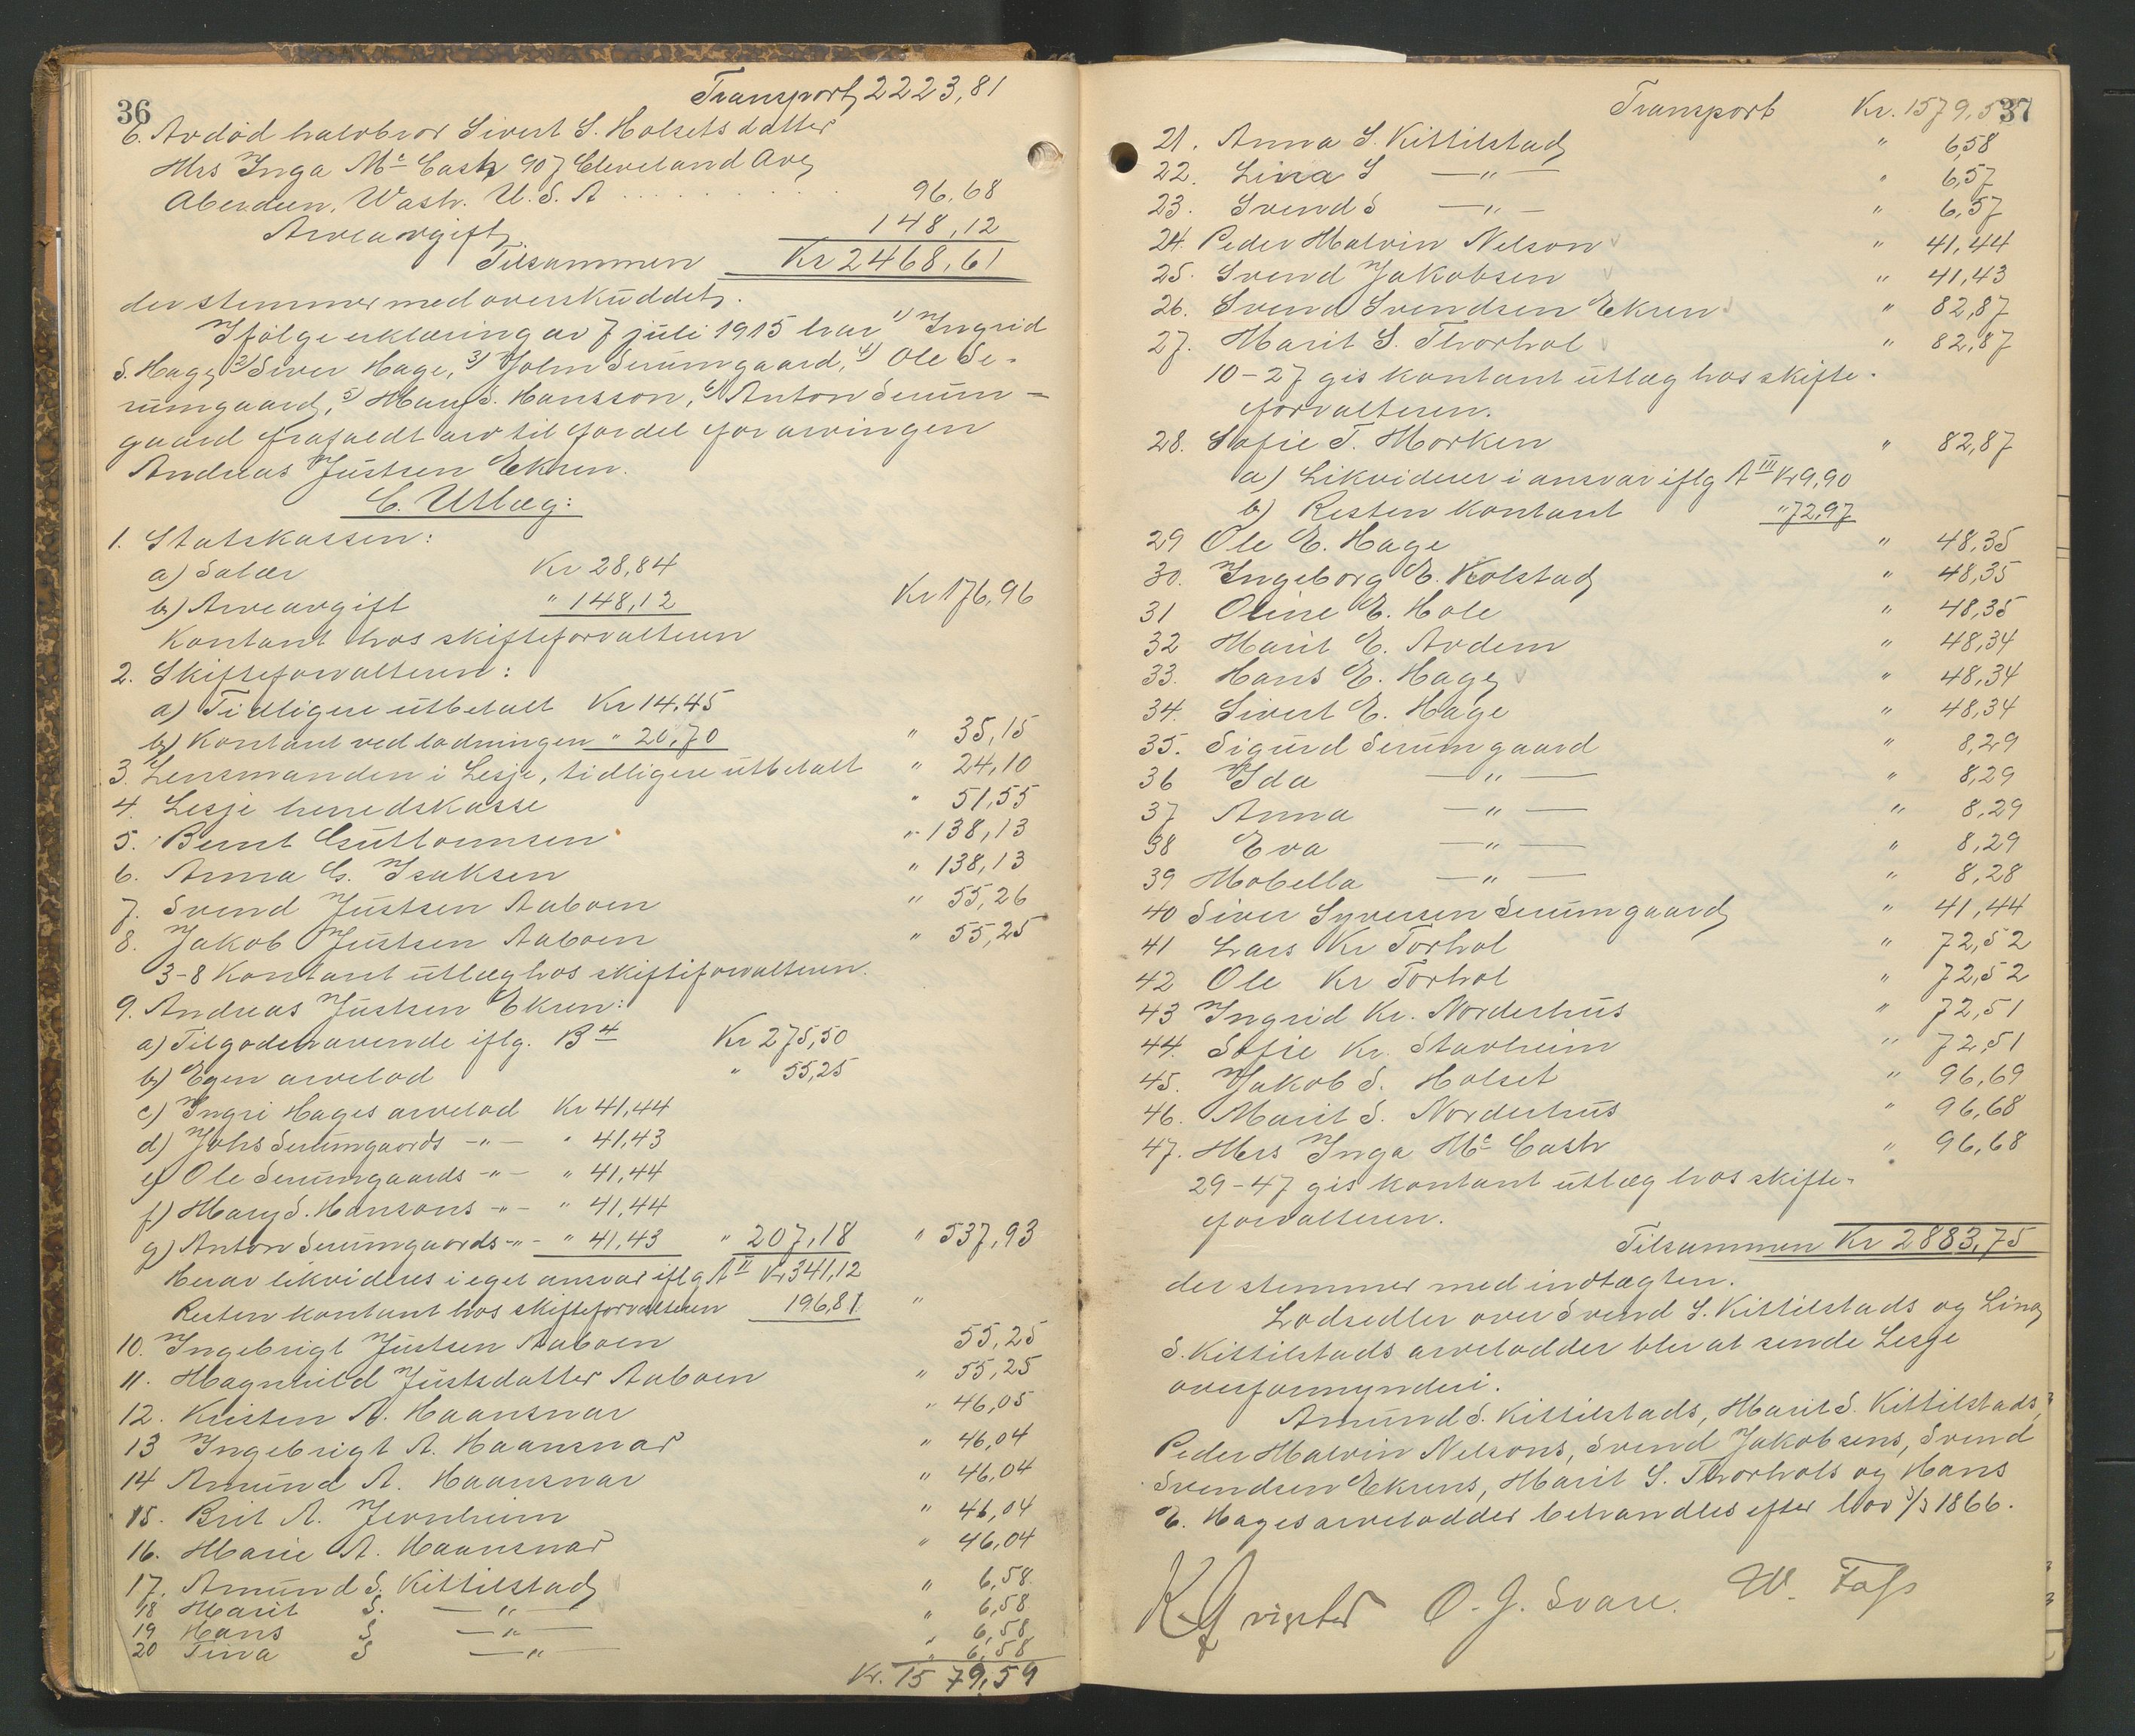 36
Transport 2223,81
6. Avdöd halvbror Sivert S. Holsets datter
Mrs Inga Mc Cash 907 Cleveland Ave
Aberdeen, Wash. U.S.A 96,68
Arveavgift 148,12
Tilsammen Kr 2468,61
der stemmer med overskuddet.
Ifölge erklæring av 7 juli 1915 har 1) Ingrid
S. Hage, 2) Siver Hage, 3) John Serumgaard, 4) Ole Se-
rumgaard, 5) Mary S. Hansson, 6) Anton Serum-
gaard frafaldt arv til fordel for arvingen
Andreas Justsen Ekren.
C. Utlæg:
1. Statskassen:
a) Salær Kr 28,84
b) Arveavgift " 148,12 Kr 176,96
Kontant hos skifteforvalteren
2. Skifteforvalteren:
a) Tidligere utbetalt Kr 14,45
b) Kontant ved lodningen " 20,70 " 35,15
3. Lensmanden i Lesje, tidligere utbetalt " 24,10
4. Lesje herredskasse " 51,55
5. Bernt Guttormsen " 138,13
6. Anna G. Isaksen " 138,13
7. Svend Justsen Aaboen " 55,26
8. Jakob Justsen Aaboen " 55,25
3-8 Kontant utlæg hos skifteforvalteren.
9. Andreas Justsen Ekren:
a) Tilgodehavende iflg. B 4 Kr 275,50
b) Egen arvelod " 55,25
c) Ingri Hages arvelod Kr 41,44
d) Johs Serumgaards -"- " 41,43
e) Ole Serumgaards -"- " 41,44
f) Mary S. Hansons -"- " 41,44
g) Anton Serumgaards -"- " 41,43 " 207,18 " 537,93
Herav likvideres i eget ansvar iflg A II Kr 341,12
Resten kontant hos skifteforvalteren 196,81 "
10. Ingebrigt Justsen Aaboen 55,25
11. Magnhild Justsdatter Aaboen " 55,25
12. Kristen A. Haansnar " 46,05
13 Ingebrigt A. Haansnar " 46,04
14 Amund A. Haansnar " 46,04
15. Brit A. Jernheim " 46,04
16. Marie A. Haansnar " 46,04
17. Amund S. Kittilstad " 6,58
18 Marit S. -"- " 6,58
19 Hans S. -"- " 6,58
20 Tina S -"- " 6,58
Kr. 1579,59
37
Transport Kr. 1579,5
21. Anna S. Kittilstad " 6,58
22. Lina S -"- " 6,57
23. Svend S -"- " 6,57
24. Peder Malvin Nelson " 41,44
25. Svend Jakobsen " 41,43
26. Svend Svendsen Ekren " 82,87
27. Marit S. Thorhol " 82,87
10-27 gis kontant utlæg hos skifte-
forvalteren.
28. Sofie T. Morken " 82,87
a) Likviderer i ansvar iflg A III Kr 9,90
b) Resten kontant " 72,97
29 Ole E. Hage " 48,35
30. Ingeborg E. Kolstad " 48,35
31 Oline E. Hole " 48,35
32 Marit E. Avdem " 48,34
33. Hans E. Hage " 48,34
34. Sivert E. Hage " 48,34
35. Sigurd Serumgaard " 8,29
36 Ida -"- " 8,29
37 Anna -"- " 8,29
38 Eva -"- " 8,29
39 Mobella -"- " 8,28
40 Siver Syversen Serumgaard " 41,44
41 Lars Kr Torhol " 72,52
42 Ole Kr Torhol " 72,52
43 Ingrid Kr. Norderhus " 72,51
44. Sofie Kr. Stavheim " 72,51
45. Jakob S. Holset " 96,69
46. Marit S. Norderhus " 96,68
47. Mrs Inga Mc Cash " 96,68
29-47 gis kontant utlæg hos skifte-
forvalteren.
Tilsammen Kr 2883,75
der stemmer med indtægten.
Lodsedler over Svend S. Kittilstads og Lina
S. Kittilstads arvelodder blir at sende Lesje
overformynderi.
Amund S. Kittilstads, Marit S. Kittilstads,
Peder Malvin Nelsons, Svend Jakobsens, Svend
Svendsen Ekrens, Marit S. Thorhols og Hans
E. Hages arvelodder behandles efter lov 3/3 1866.
O. J. Svare. W. Fass